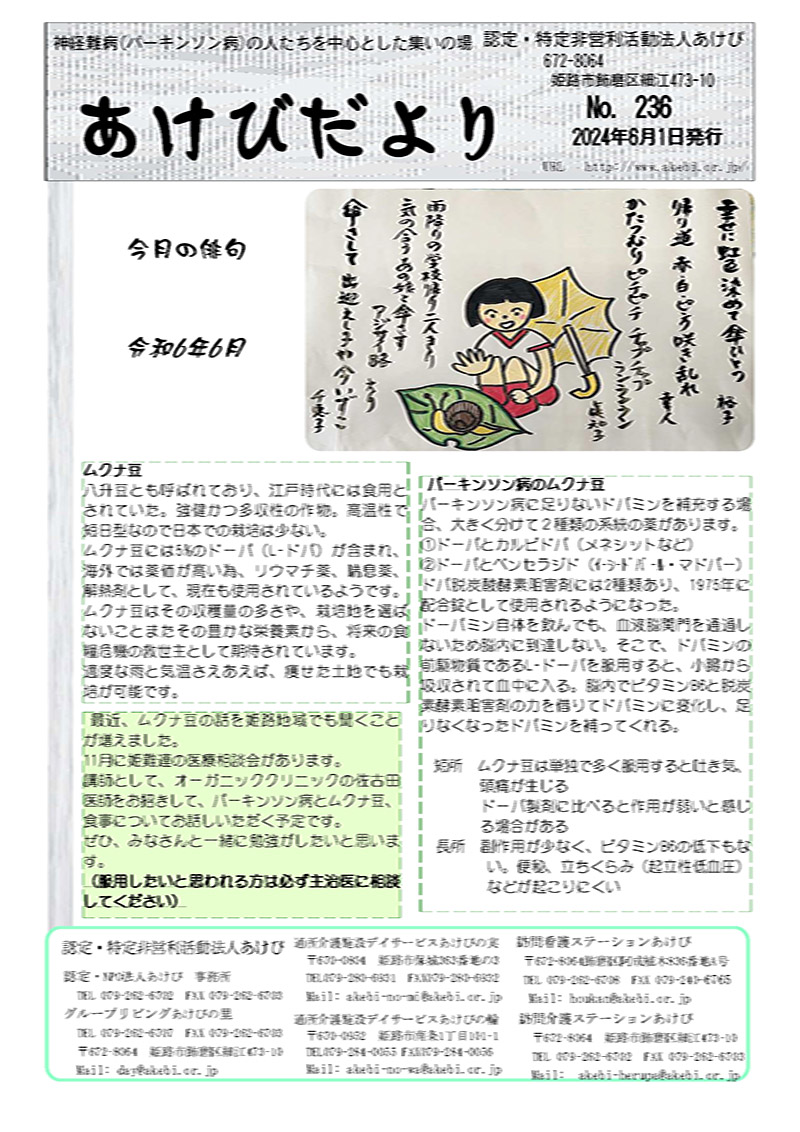 神経難病(パーキンソン病)の人たちを中心とした集いの場
認定・特定非営利活動法人あけび
672-8064
姫路市飾磨区細江473-10
あけびだより
No. 236
2024年6月1日発行
URL http://www.akebi.or.jp/
今月の俳句
令和6年6月
幸せに虹色染めて傘ひとつ 裕子
帰り道 赤・白・ピンク咲き乱れ 重人
かたつむり ピチピチ チャプチャプ ランランラン
雨降りの学校帰り二人きり
アジサイ路
傘さして 出迎えし子や今いずこ 千恵子
ムクナ豆
八升豆とも呼ばれており、江戸時代には食用と
されていた。強健かつ多収性の作物。高温性で
短日型なので日本での栽培は少ない。
ムクナ豆には5%のドーパ（L-ドパ）が含まれ、
海外では薬価が高い為、リウマチ薬、喘息薬、
解熱剤として、現在も使用されているようです。
ムクナ豆はその収穫量の多さや、栽培地を選ば
ないことまたその豊かな栄養素から、将来の食
糧危機の救世主として期待されています。
適度な雨と気温さえあえば、痩せた土地でも栽
培が可能です。
最近、ムクナ豆の話を姫路地域でも聞くこと
が増えました。
11月に姫難連の医療相談会があります。
講師として、オーガニッククリニックの佐古田
医師をお招きして、パーキンソン病とムクナ豆、
食事についてお話しいただく予定です。
ぜひ、みなさんと一緒に勉強がしたいと思いま
す。
（服用したいと思われる方は必ず主治医に相談
してください）
パーキンソン病のムクナ豆
パーキンソン病に足りないドパミンを補充する場
合、大きく分けて２種類の系統の薬があります。
①ドーパとカルビドパ（メネシットなど）
②ドーパとベンセラジド（ｲｰｼｰﾄﾞﾊﾟｰﾙ・マドパー）
ドパ脱炭酸酵素阻害剤には2種類あり、1975年に
配合錠として使用されるようになった。
ドーパミン自体を飲んでも、血液脳関門を通過し
ないため脳内に到達しない。そこで、ドパミンの
前駆物質であるL-ドーパを服用すると、小腸から
吸収されて血中に入る。脳内でビタミンB6と脱炭
素酵素阻害剤の力を借りてドパミンに変化し、足
りなくなったドパミンを補ってくれる。
短所 ムクナ豆は単独で多く服用すると吐き気、
頭痛が生じる
ドーパ製剤に比べると作用が弱いと感じ
る場合がある
長所 副作用が少なく、ビタミンB6の低下もな
い。便秘、立ちくらみ（起立性低血圧）
などが起こりにくい
認定・特定非営利活動法人あけび
認定・NPO法人あけび 事務所
TEL 079-262-6702 FAX 079-262-6703
グループリビングあけびの里
TEL 079-262-6707 FAX 079-262-6703
〒672-8064 姫路市飾磨区細江473-10
Mail: day@akebi.or.jp
通所介護施設デイサービスあけびの実
TEL079-280-6931 FAX079-280-6932
Mail: akebi-no-mi@akebi.or.jp
通所介護施設デイサービスあけびの輪
TEL079-284-0055 FAX079-284-0056
Mail: akebi-no-wa@akebi.or.jp
訪問看護ステーションあけび
Mail: houkan@akebi.or.jp
訪問介護ステーションあけび
〒672-8064 姫路市飾磨区細江473-10
TEL 079-262-6702 FAX 079-262-6703